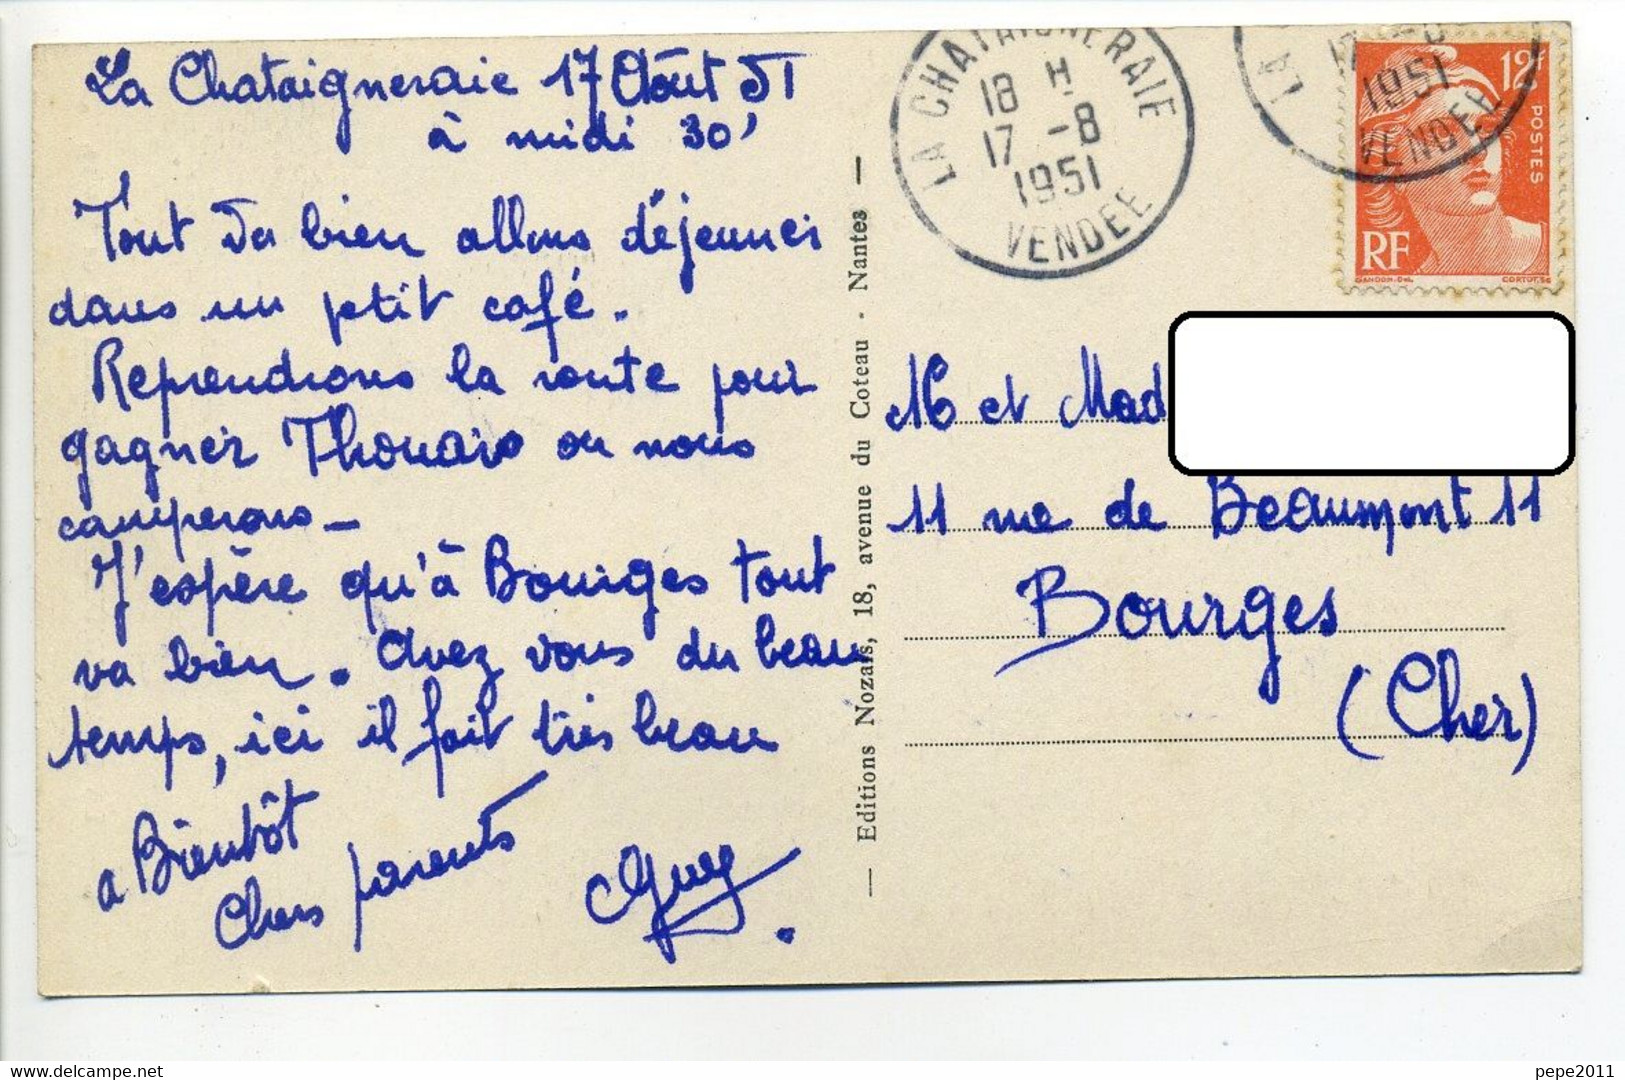 La Chataigneraie 17 Août 51
à midi 30'
Tout va bien allons déjeuner
dans un petit café.
Reprendrons la route pour
gagner Thouars ou nous
camperons_
J'espère qu'à Bourges tout
va bien. Avez vous du beau
temps, ici il fait très beau
a Bientôt
Chers parents
Guy
— Editions Nozais, 18, avenue du Coteau - Nantes —
LA CHATAIGNERAIE
18 H
17 -8
1951
VENDEE
LA
17 -8
1951
VENDEE
12f
POSTES
RF
GANDON.DEL
CORTOT.SC
M et Mad
11 rue de Beaumont 11
Bourges
(Cher)
pepe2011